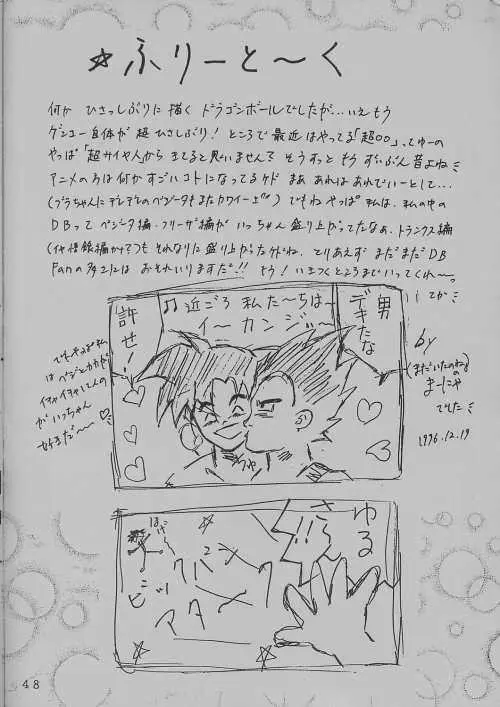 ☆ふりーと〜く
何か ひさっしぶりに描く ドラゴンボールでしたが…いえもう
ゲンコー自体が超ひさしぶり! ところで最近はやってる「超○○」ってゆーの
やっぱ「超サイヤ人」から きてると思いません? そうすっと もう ずいぶん昔よね
アニメの方は何かすごいコトになってるケド まあ あれはあれでいーとして…
(ブラちゃんにデレデレのベジータもまたカワイー) でもねやっぱ 私は、私の中の
DBって ベジータ編・フリーザ編が いっちゃん盛り上がってたなぁ、トランクス編
も それなりに盛り上がったケドね、とりあえず まだまだDB
Fanの多さには おそれいりますだ!! もう! いきつくところまでいってくれ〜っ
てか
近ごろ 私た〜ちは〜
イ〜カンジ〜
♫
男
デキたな
許せ!
でもやっぱ私
はベジとカカが
イチャイチャしてんの
がいっちゃん
好きだ〜〜
by
(まだいたのね)
まーにゃ
でした
1996.12.19
ゆる
さん!!
48